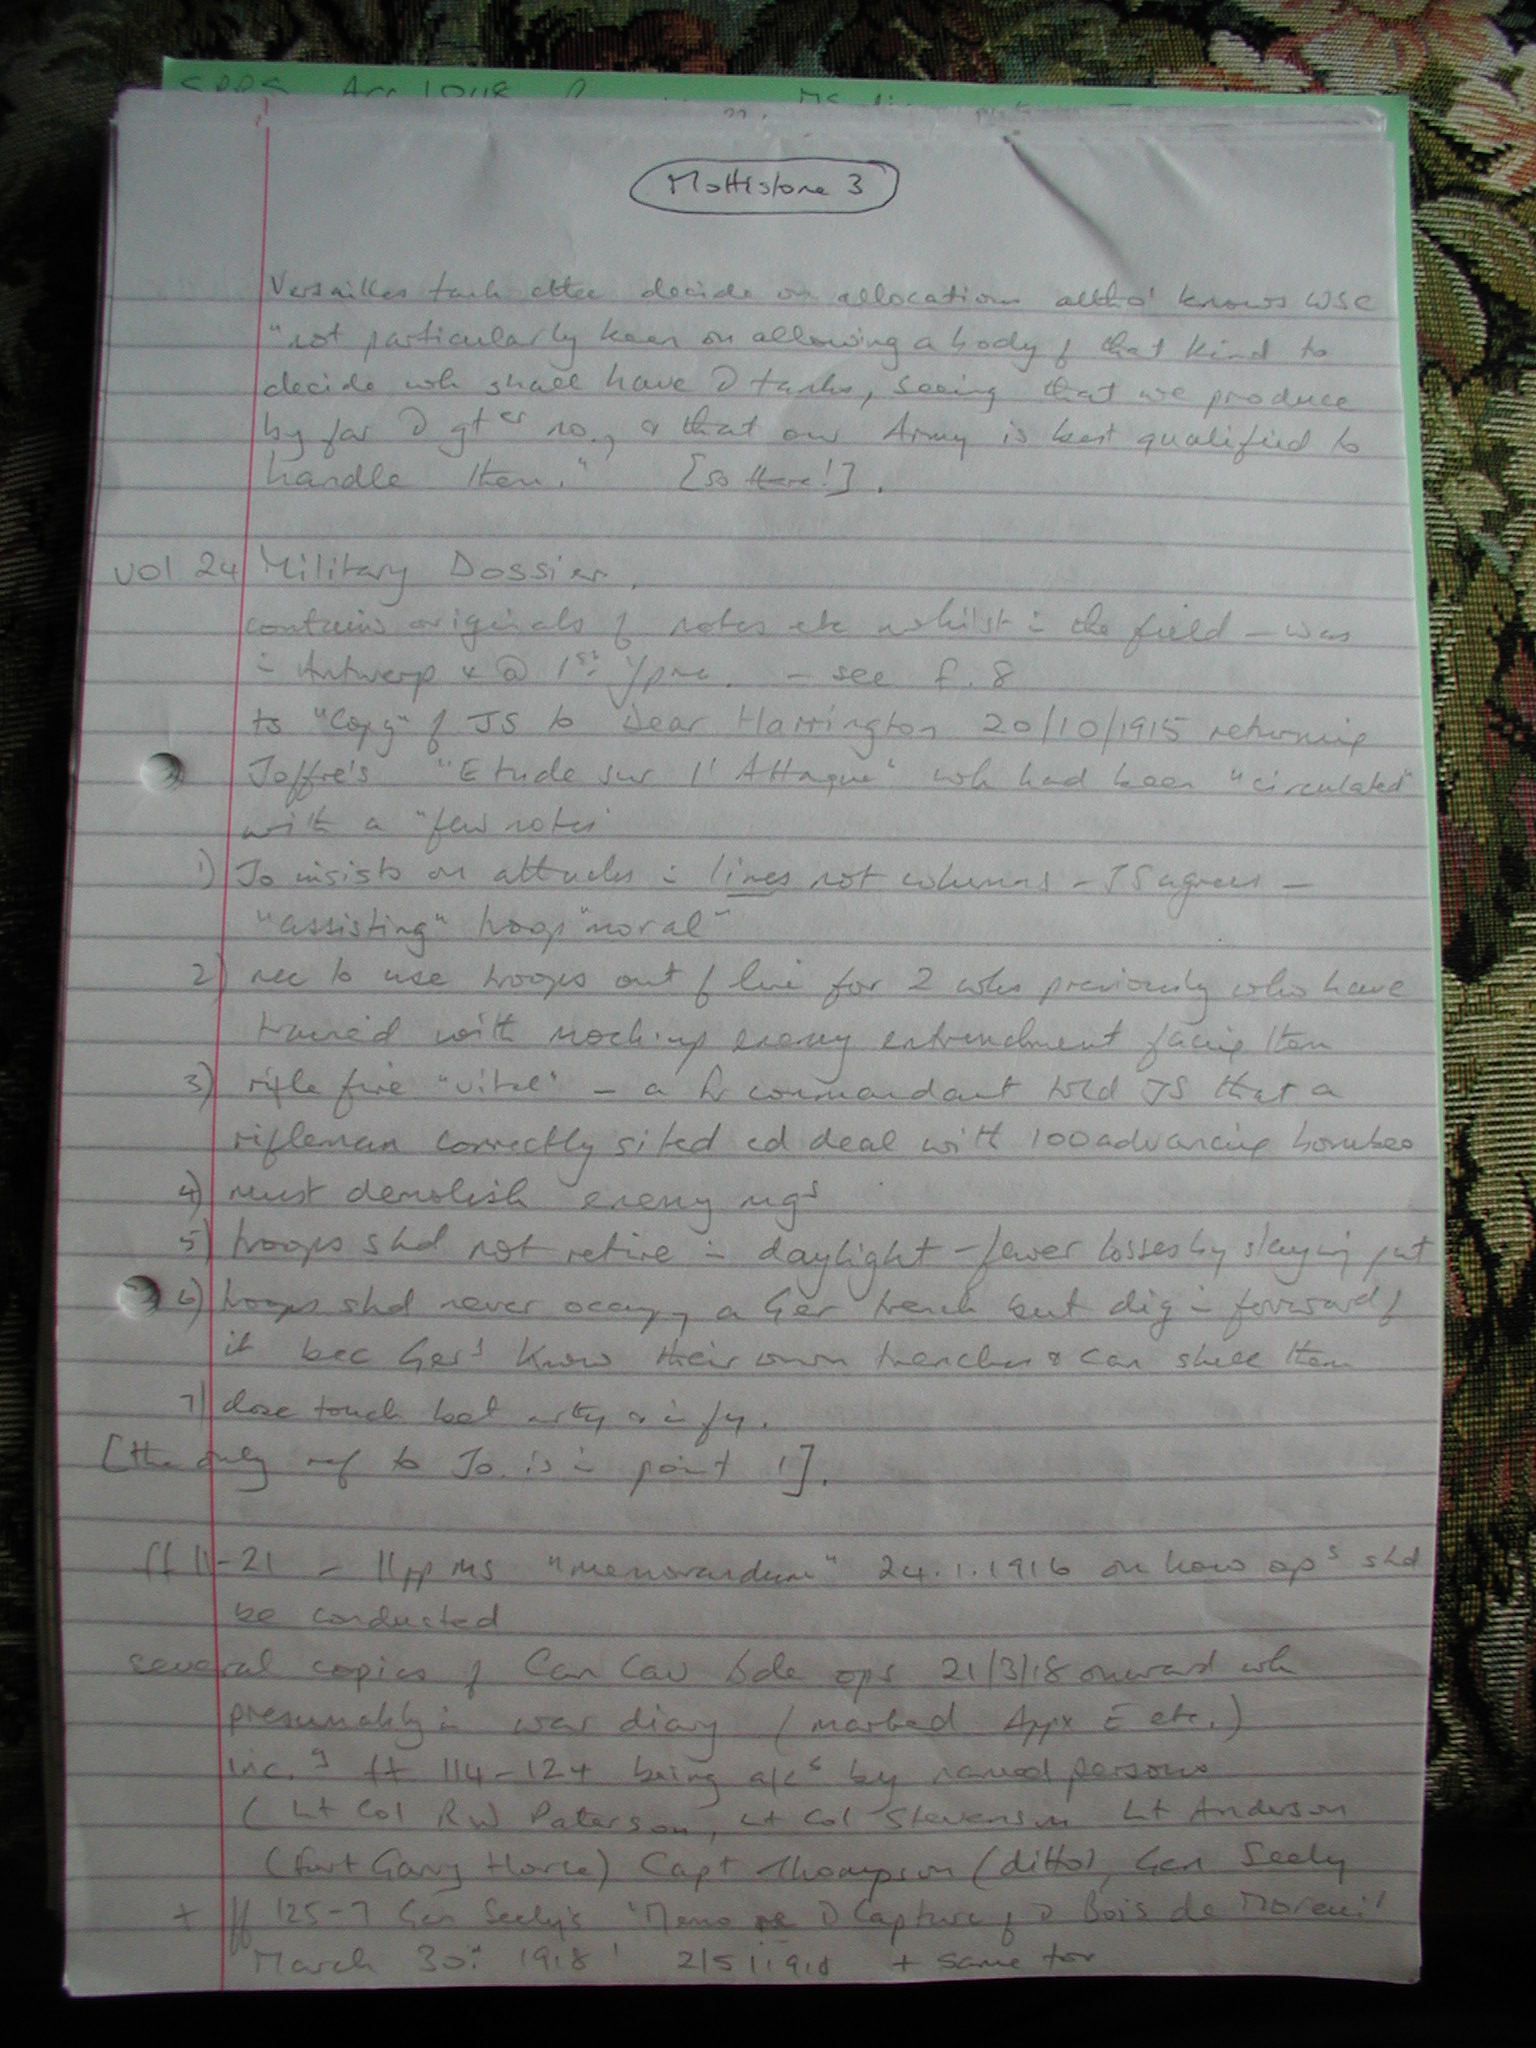 Mottistone 3
Versailles tank cttee decide on allocation altho' knows WSC
"not particularly keen on allowing a body of that kind to
decide wh shall have D tanks, seeing that we produce
by far D gter no., & that our Army is best qualified to
handle them." [so there!].
vol 24 Military Dossier.
contains originals of notes etc whilst in the field - was
in Antwerp & @ 1st Ypre. - see f.8
ts "Copy" of JS to Dear Harrington 20/10/1915 returning
Joffre's "Etude sur l'Attaque" wh had been "circulated"
with a "few notes"
1) Jo insists on attacks in lines not columns - JS agrees -
"assisting" troops "moral"
2) rec to use troops out of line for 2 wks previously who have
trained with mock-up enemy entrenchment facing them
3) rifle fire "vital" - a Fr commandant told JS that a
rifleman correctly sited cd deal with 100 advancing bombers
4) must demolish enemy mgs
5) troops shd not retire in daylight - fewer losses by staying put
6) troops shd never occupy a Ger trench but dig in forward of
it bec Gers know their own trenches & can shell them
7) close touch bet arty & infy.
[the only ref to Jo. is in point 1].
ff 11-21 - 11pp MS "memorandum" 24.1.1916 on how ops shd
be conducted
several copies of Can Cav Bde ops 21/3/18 onward wh
presumably in war diary (marked Appx E etc.)
inc.g ff 114-124 being a/cs by named persons
(Lt Col RW Paterson, Lt Col Stevenson Lt Anderson
(Fort Garry Horse) Capt Thompson (ditto), Gen Seely
+ ff 125-7 Gen Seely's 'Memo re D Capture of D Bois de Moreuil
March 30th 1918' 2/5/1918 + same for